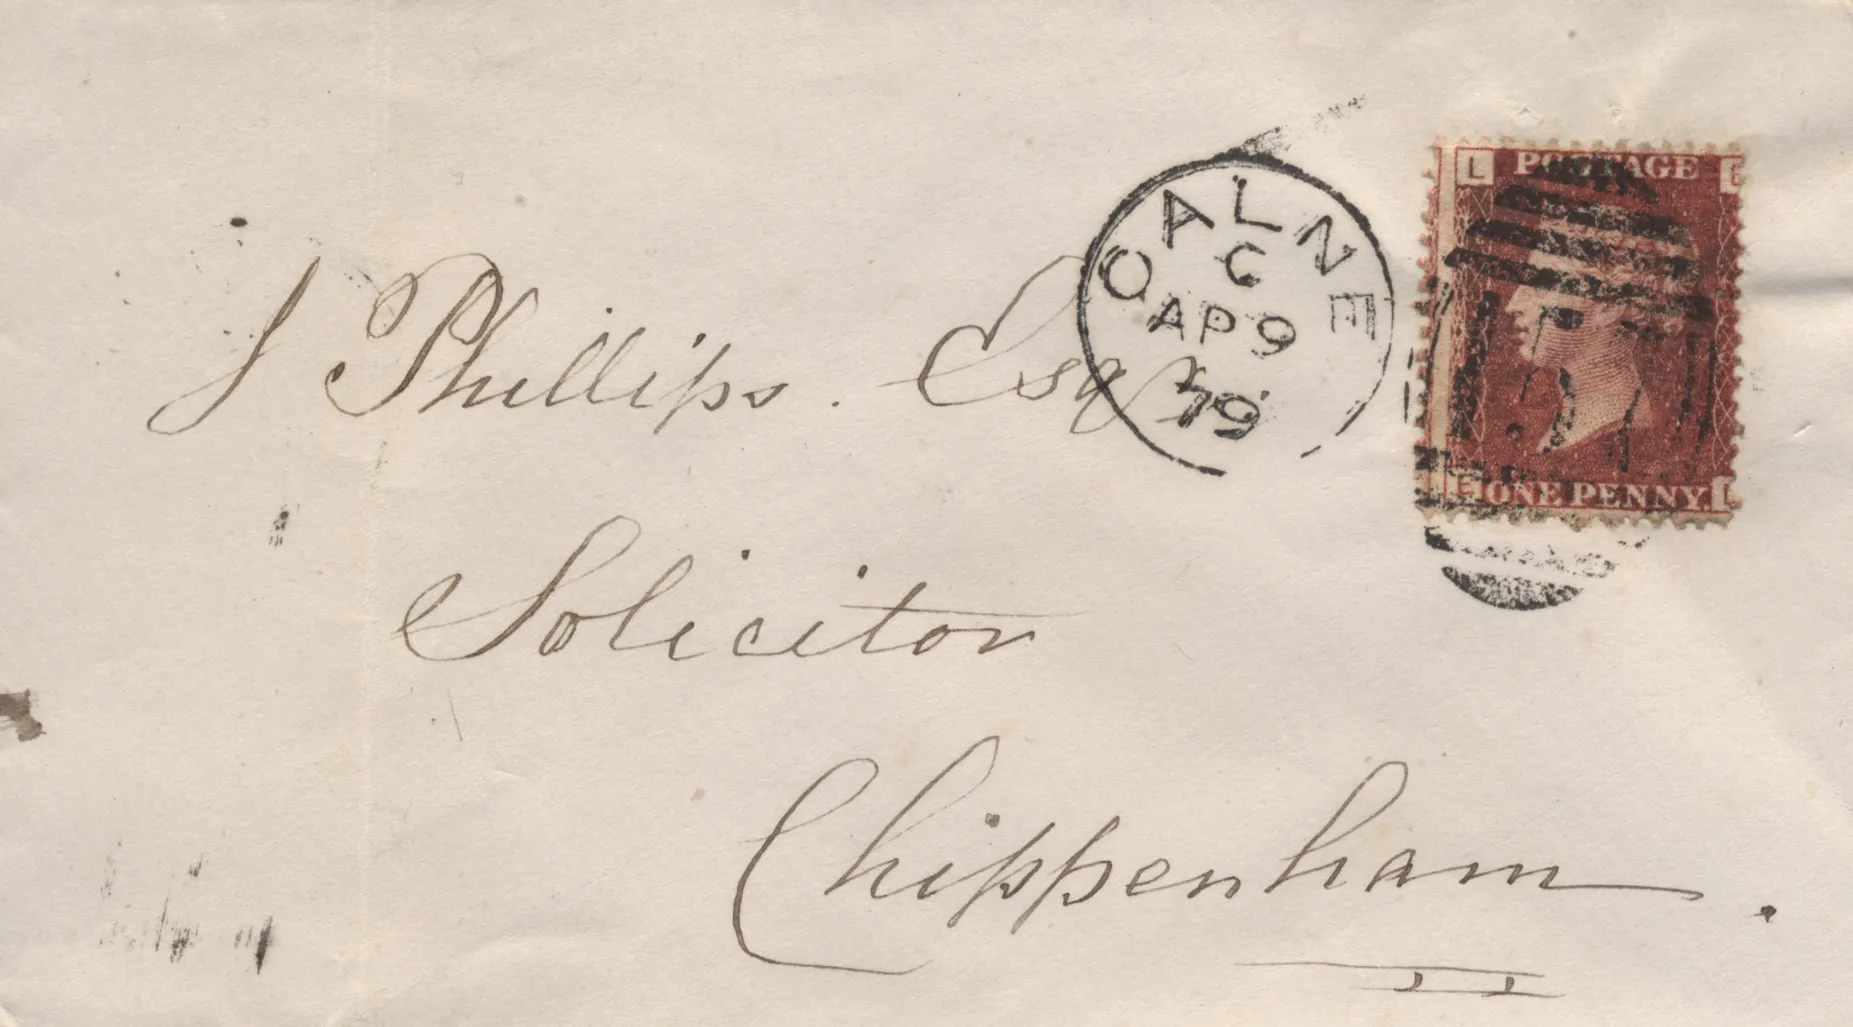 J Phillips. Esqr
Solicitor
Chippenham.
CALNE
C
AP 9
79
L POSTAGE E
E ONE PENNY. L